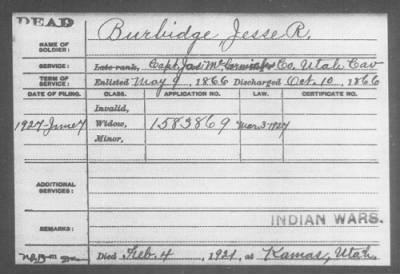 DEAD
NAME OF SOLDIER: Burbidge Jesse R.
SERVICE: Late rank, Capt. Jas. McCormick's Co. Utah Cav
TERM OF SERVICE: Enlisted May 9, 1866 Discharged Oct. 10, 1866
DATE OF FILING. CLASS. APPLICATION NO. LAW. CERTIFICATE NO.
Invalid,
1927-June 7 Widow, 1583869 Mar. 3-1927
Minor,
ADDITIONAL SERVICES:
INDIAN WARS.
REMARKS:
Died Feb. 4, 1921, at Kamas, Utah.